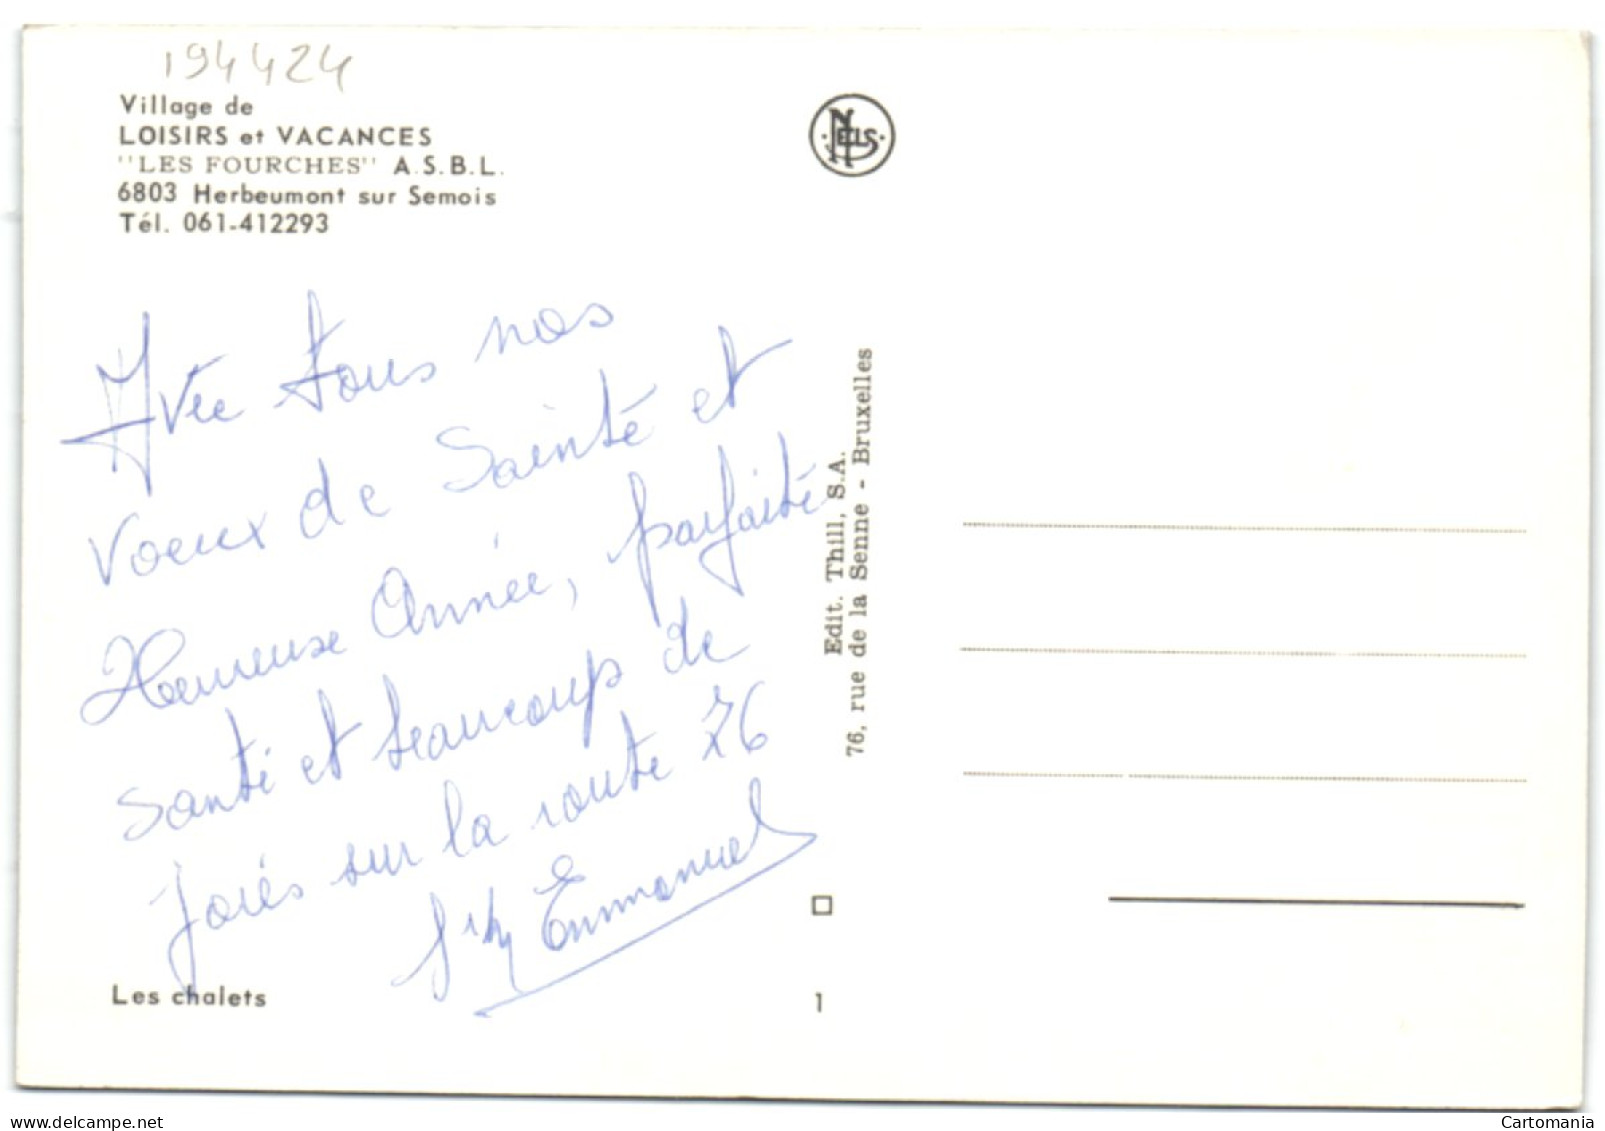 194424
Village de
LOISIRS et VACANCES
"LES FOURCHES" A.S.B.L.
6803 Herbeumont sur Semois
Tél. 061-412293
NELS
Avec tous nos
voeux de Sainte et
Heureuse Année, parfaite
santé et beaucoup de
joies sur la route 76
Emmanuel
Les chalets
Edit. Thill, S.A.
76, rue de la Senne - Bruxelles
1
delcampe.net
Cartomania